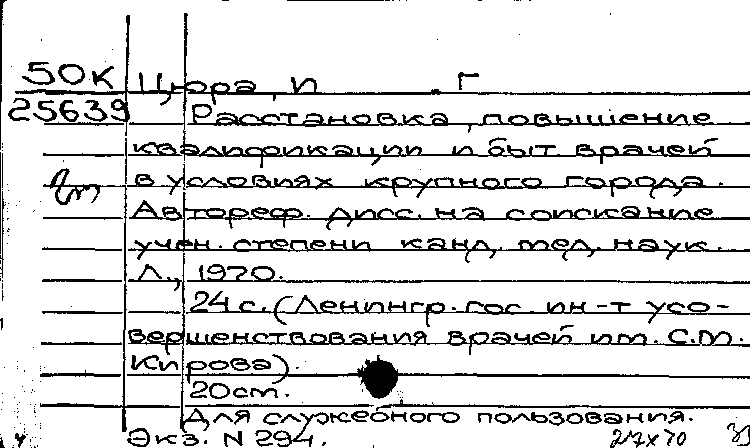 50К
25639
Цюра, И . Г
Расстановка, повышение
квалификации и быт врачей
в условиях крупного города.
Автореф. дисс. на соискание
учен. степени канд. мед. наук.
Л., 1970.
24 с. (Ленингр. гос. ин-т усо-
вершенствования врачей им. С.М.
Кирова).
20 ст.
Для служебного пользования.
Экз. N 294.